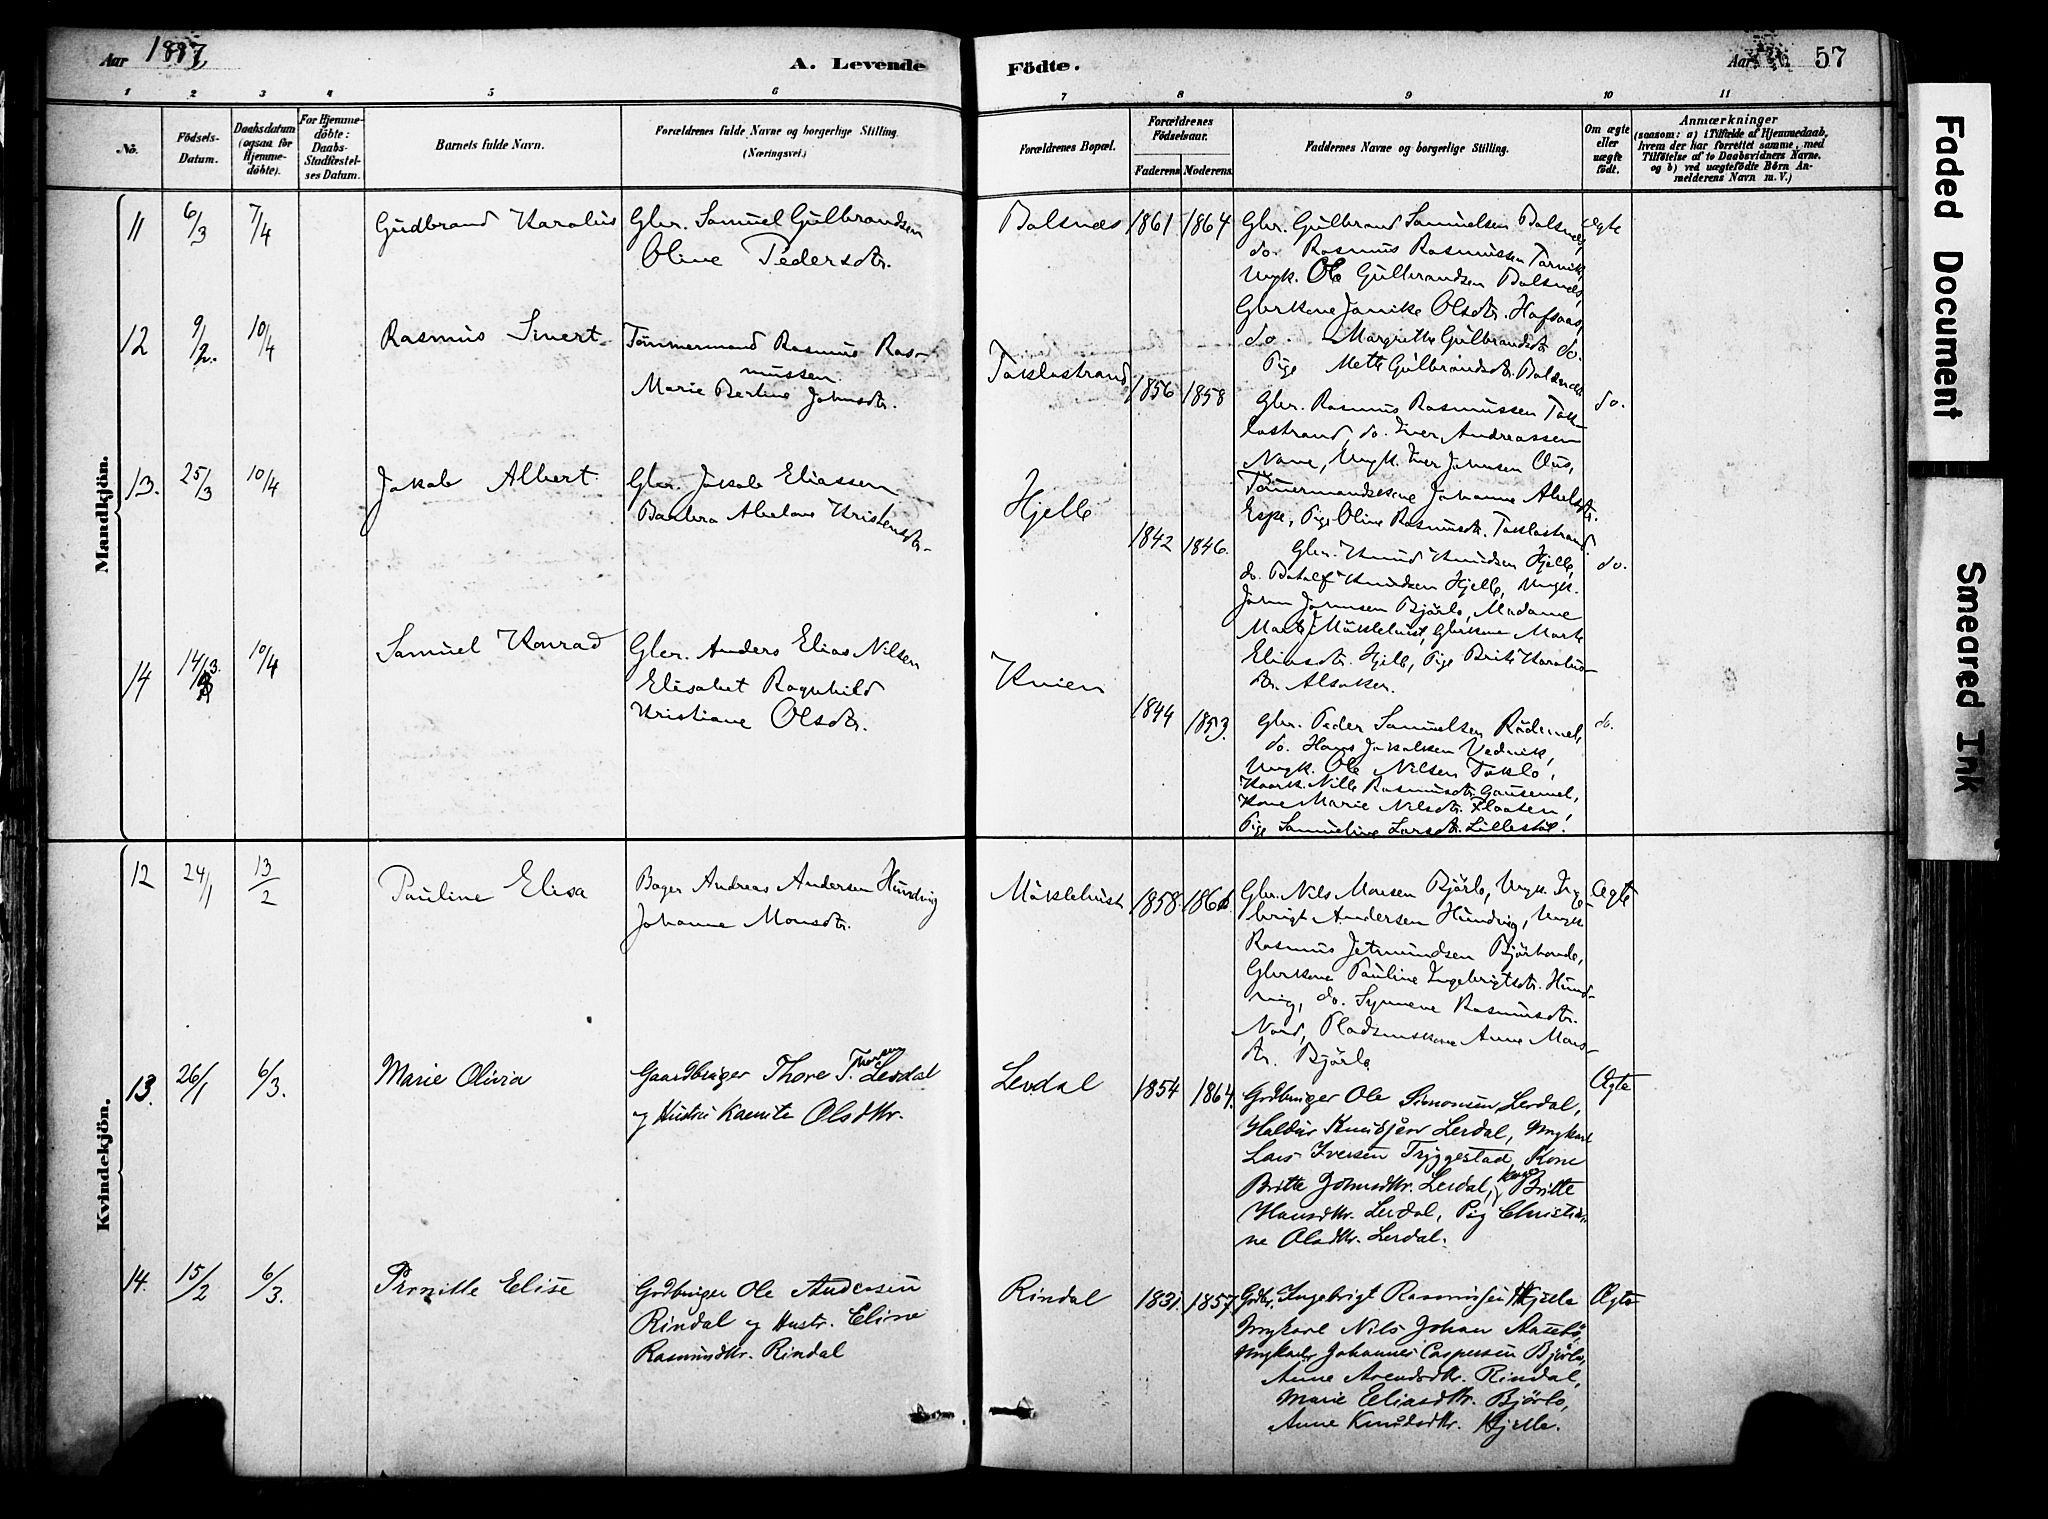 Aar 1887
A. Levende
Födte.
Aar
57
1 2 3 4 5 6 7 8 9 10 11
No.
Födsels-
Datum.
Daabsdatum
(ogsaa for
Hjemme-
döbte).
For Hjemme-
döbte:
Daabs-
Stadfæstel-
ses Datum.
Barnets fulde Navn.
Forældrenes fulde Navne og borgerlige Stilling.
(Næringsvei.)
Forældrenes Bopæl.
Forældrenes
Födselsaar.
Faderens Moderens
Faddernes Navne og borgerlige Stilling.
Om ægte
eller
uægte
födt.
Anmærkninger
(saasom: a) i Tilfælde af Hjemmedaab,
hvem der har forrettet samme, med
Tilföielse af to Daabsvidners Navne.
og b) ved uægtefödte Börn An-
melderens Navn m. V.)
Mandkjön.
11 6/3 7/4 Gudbrand Karolus
Gbr. Samuel Gulbrandsen
Oline Pedersdtr.
Balsnæs 1861 1864
Gbr. Gulbrand Samuelsen Balsnæs,
do. Rasmus Rasmussen Tarvik,
Ungk. Ole Gulbrandsen Balsnæs,
Gbrkone Janike Olsdtr. Hafsaas,
do. Margrethe Gulbrandsdtr. do.
Pige Mette Gulbrandsdtr. Balsnæs
Ægte
12 9/2. 10/4 Rasmus Sivert
Tømmermand Rasmus Ras-
mussen.
Marie Bertine Johnsdtr.
Taklostrand 1856 1858
Gbr. Rasmus Rasmussen Tak-
lostrand, do. Iver Andreassen
Nave, Ungk. Iver Johnsen Aus,
Tömermandskone Johanne Abelsdtr.
Espe, Pige Oline Rasmusdtr. Taklostrand.
do.
13. 25/3 10/4 Jakob Albert
Gbr. Jakob Eliassen
Barbra Abelone Kristensdtr.
Hjelle 1842 1846.
Gbr. Knud Knudsen Hjelle,
do. Botolf Knudsen Hjelle, Ungk.
John Johnsen Bjørlo, Madame
Marte Måklehust, Gbrkone Marte
Eliasdtr. Hjelle, Pige Brite Karolus-
dtr. Alsaker.
do.
14 14/3. 10/4 Samuel Konrad
Gbr. Anders Elias Nilsen
Elisabet Ragnhild
Kristiane Olsdtr.
Kvien 1844 1853.
Gbr. Peder Samuelsen Rødemel,
do. Hans Jakobsen Vedvik,
Ungk. Ole Nilsen Taklo,
Kaark. Nille Rasmusdtr. Gausemel,
Kone Marie Nilsdtr. Flaaten,
Pige Samueline Larsdtr. Lillestöl.
do.
Kvindekjön.
12 24/1 13/2 Pauline Elisa
Bager Andreas Andersen Hundvig
Johanne Monsdtr.
Måklehust 1858. 1861
Gbr. Nils Monsen Bjørlo, Ungk. Inge-
brigt Andersen Hundvig, Ungk.
Rasmus Jetmundsen Bjørhovde,
Gbrkone Pauline Ingebrigtsdtr. Hund-
vig, do. Synneve Rasmusdtr.
Nord, Pladsmskone Anne Mons-
dtr. Bjørlo
Ægte
13. 26/1 6/3. Marie Olivia
Gaardbruger Thore T. Thoresen Levdal
og Hustru Karnita Olsdttr.
Levdal 1854 1864.
Grdbruger Ole Simonsen Levdal,
Haldur Knudsen Levdal, Ungkarl
Lars Iversen Tryggestad, Kone
Britte Johnsdttr. Levdal, Kone Britte
Hansdttr. Levdal, Pig Christia-
ne Olsdttr. Levdal.
Ægte
14. 15/2 6/3. Pernille Elise
Grdbruger Ole Andersen
Rindal og Hustr. Eline
Rasmusdttr. Rindal
Rindal 1831. 1857.
Grdbr. Ingebrigt Rasmussen Hjelle
Ungkarl Nils Johan
Ungkarl Johannes Caspersen Bjørlo,
Anne Arendsdttr. Rindal,
Marie Eliasdttr. Bjørlo,
Anne Knudsdttr. Hjelle.
Ægte
Faded Document
Smeared Ink